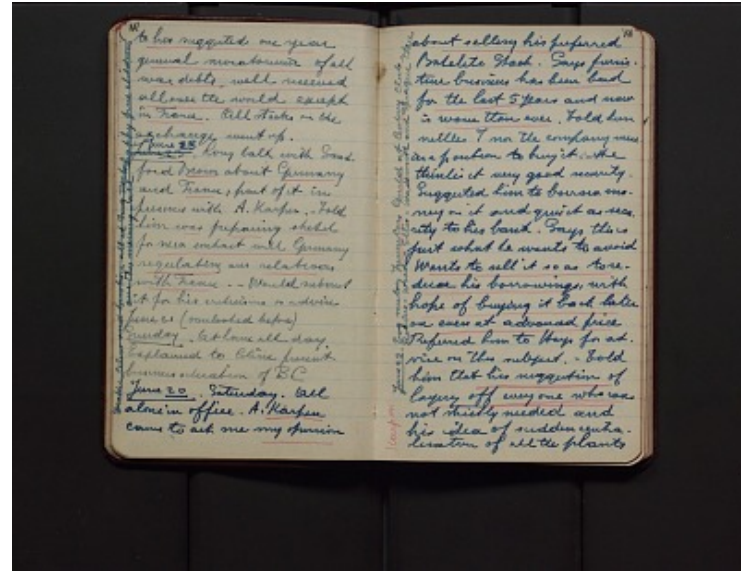 to his suggested one year
general moratorium of all
war debts, well received
all over the world except
in France. All stocks on the
exchange went up.
June 23. Long talk with Sand-
ford Brown about Germany
and France, part of it in
presence with A. Karpen. Told
him was preparing sketch
for new contract with Germany
regulating our relations
with France. - Would submit
it for his criticism or advice
June 21 (overlooked before)
Sunday. At home all day.
Explained to Céline present
business situation of BC
June 20. Saturday. All
alone in office. A. Karpen
came to ask me my opinion
about selling his preferred
Bakelite Stock. Says furni-
ture business has been bad
for the last 5 years and now
is worse than ever. Told him
neither I nor the company were
in a position to buy it. He
thinks it very good security.
Suggested him to borrow mo-
ney on it and give it as secu-
rity to his bank. Says this is
just what he wants to avoid
Wants to sell it so as to re-
duce his borrowings, with
hope of buying it back later
on even at advanced price
Referred him to Hays for ad-
vice on this subject. - Told
him that his suggestion of
laying off everyone who was
not strictly needed and
his idea of sudden centra-
lisation of all the plants
Karpen